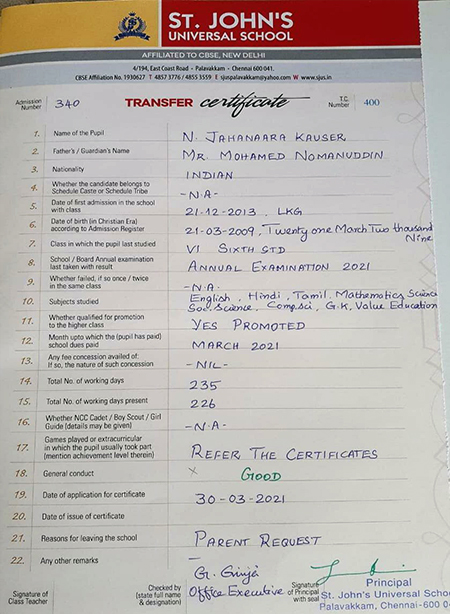 ST. JOHN'S
UNIVERSAL SCHOOL
AFFILIATED TO CBSE, NEW DELHI
4/194, East Coast Road - Palavakkam - Chennai 600 041.
CBSE Affiliation No. 1930627 T 4857 3776 / 4855 3559 E sjuspalavakkam@yahoo.com W www.sjus.in
Admission Number 340 TRANSFER certificate T.C. Number 400
1. Name of the Pupil N. JAHANAARA KAUSER
2. Father's / Guardian's Name MR. MOHAMED NOMANUDDIN
3. Nationality INDIAN
4. Whether the candidate belongs to
Schedule Caste or Schedule Tribe -N.A-
5. Date of first admission in the school
with class 21-12-2013. LKG
6. Date of birth (in Christian Era)
according to Admission Register 21-03-2009. Twenty one March Two thousand
Nine
7. Class in which the pupil last studied VI SIXTH STD
8. School / Board Annual examination
last taken with result ANNUAL EXAMINATION 2021
9. Whether failed, if so once / twice
in the same class -N.A-
10. Subjects studied English, Hindi, Tamil, Mathematics, Science
Soc.Science, Comp.sci, G.K, Value Education
11. Whether qualified for promotion
to the higher class YES PROMOTED
12. Month upto which the (pupil has paid)
school dues paid MARCH 2021
13. Any fee concession availed of:
If so, the nature of such concession -NIL-
14. Total No. of working days 235
15. Total No. of working days present 226
16. Whether NCC Cadet / Boy Scout / Girl
Guide (details may be given) -N.A-
17. Games played or extracurricular
in which the pupil usually took part
(mention achievement level therein) REFER THE CERTIFICATES
18. General conduct × GOOD
19. Date of application for certificate 30-03-2021
20. Date of issue of certificate
21. Reasons for leaving the school PARENT REQUEST
22. Any other remarks -
Signature of
Class Teacher
Checked by
(state full name
& designation)
G. Girija
Office Executive
Signature
of Principal
with seal
Principal
St. John's Universal Schoo
Palavakkam, Chennai-600 0